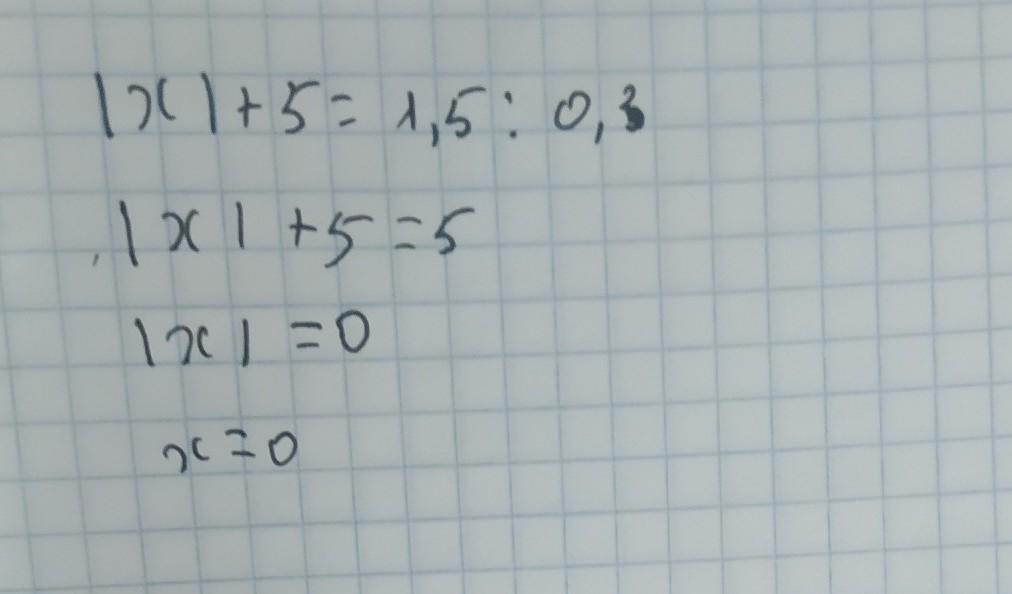 |x|+5=1,5:0,3
|x|+5=5
|x|=0
x=0